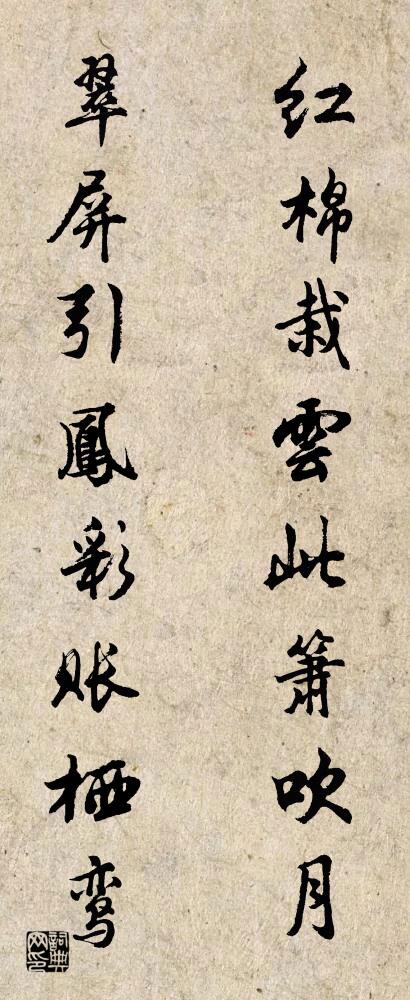 红棉栽雲此箫吹月
翠屏引鳳彩账栖鸾
詞典网印